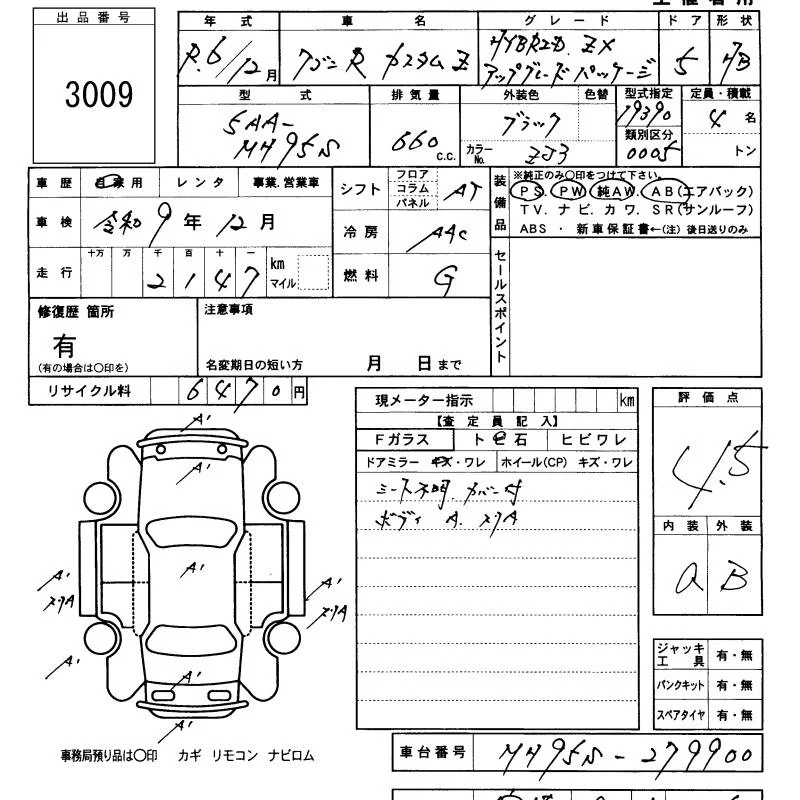 出品番号
3009
年式 車名 グレード ドア 形状
R.6/12月 ワゴンR カスタムZ HYBRID ZX アップグレードパッケージ 5 HB
型式 排気量 外装色 色替 型式指定 定員・積載
5AA-MH95S 660 c.c. ブラック 19390 4名
カラーNo. ZJ3 類別区分 0005 トン
車歴 自家用 レンタ 事業.営業車
シフト フロア コラム パネル AT
装備品 ※純正のみ〇印をつけて下さい。
PS. PW. 純AW. AB(エアバック)
TV. ナビ. カワ. SR(サンルーフ)
ABS ・ 新車保証書←(注) 後日送りのみ
車検 令和9年12月
冷房 AAC
走行 十万 万 千 百 十 一
2147 km マイル
燃料 G
セールスポイント
修復歴 箇所
有
(有の場合は〇印を)
注意事項
名変期日の短い方 月 日まで
リサイクル料 6470円
現メーター指示 km
【査定員記入】
Fガラス ト 石 ヒビワレ
ドアミラー キズ・ワレ ホイール(CP) キズ・ワレ
シート不明. カバー付
ボディ A. スリA
評価点
4.5
内装 外装
a B
ジャッキ工具 有・無
パンクキット 有・無
スペアタイヤ 有・無
A'
A'
A'
A' スリA
A' スリA
A'
A'
A'
事務局預り品は〇印 カギ リモコン ナビロム
車台番号 MH95S-279900